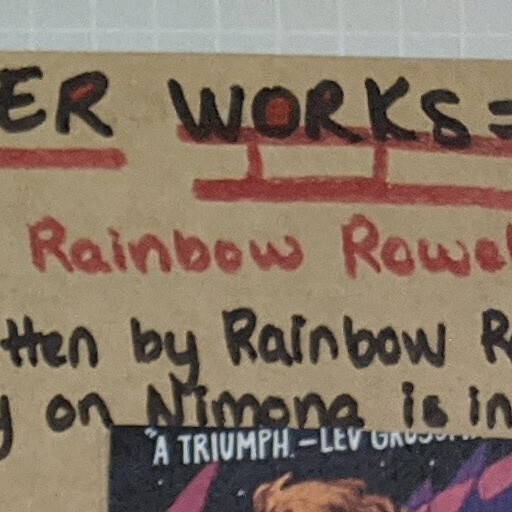 ER WORKS=
Rainbow Rowel
tten by Rainbow R
y on Nimona is in
"A TRIUMPH.—LEV GROSS